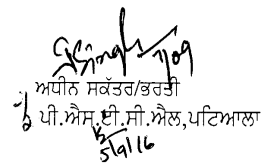 ਅਧੀਨ ਸਕੱਤਰ/ਭਰਤੀ
ਪੀ.ਐਸ.ਈ.ਸੀ.ਐਲ,ਪਟਿਆਲਾ
5/9/16